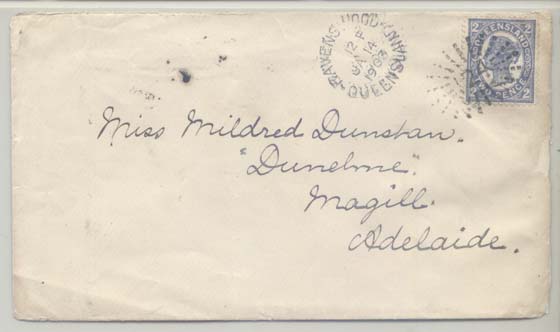 RAVENSWOOD JUNCTION
12 P
JA 14
QUEENSLAND
2 QUEENSLAND 2
TWO PENCE
Miss Mildred Dunstan.
"Dunelme".
Magill.
Adelaide.